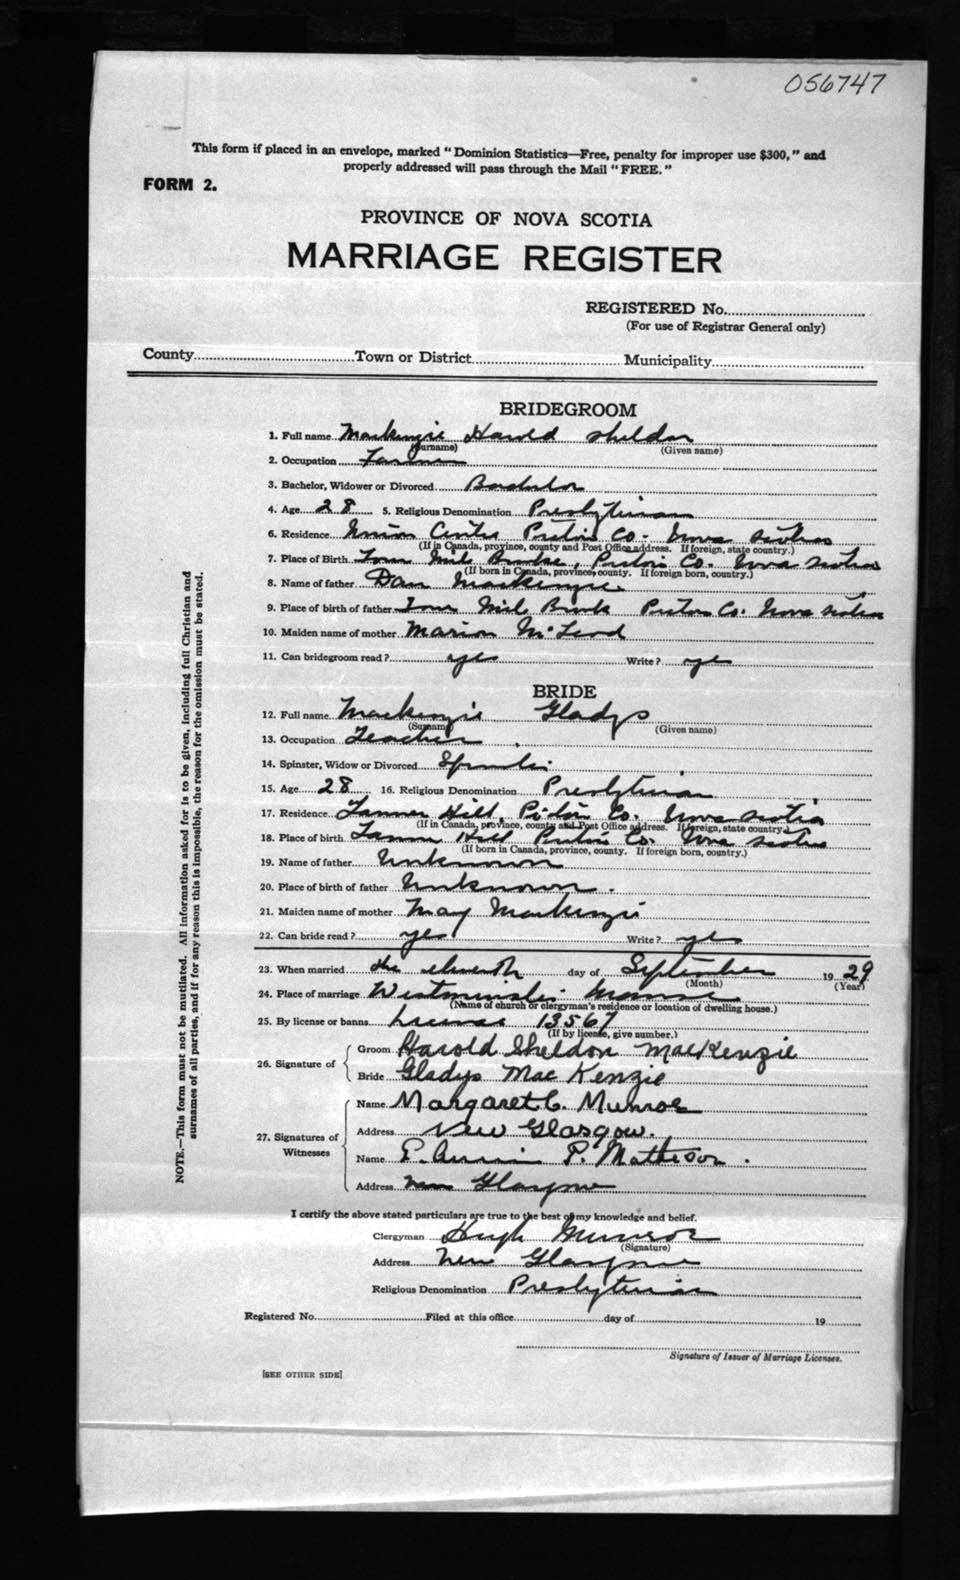 056747
This form if placed in an envelope, marked "Dominion Statistics—Free, penalty for improper use $300," and
properly addressed will pass through the Mail "FREE."
FORM 2.
PROVINCE OF NOVA SCOTIA
MARRIAGE REGISTER
REGISTERED No.
(For use of Registrar General only)
County Town or District Municipality
BRIDEGROOM
1. Full name Mackenzie Harold Sheldon
(Surname) (Given name)
2. Occupation Farmer
3. Bachelor, Widower or Divorced Bachelor
4. Age 28 5. Religious Denomination Presbyterian
6. Residence Union Centre Pictou Co. Nova Scotia
(If in Canada, province, county and Post Office address. If foreign, state country.)
7. Place of Birth Four Mile Brooke, Pictou Co. Nova Scotia
(If born in Canada, province, county. If foreign born, country.)
8. Name of father Dan Mackenzie
9. Place of birth of father Four Mile Brook Pictou Co. Nova Scotia
10. Maiden name of mother Marion McLeod
11. Can bridegroom read? yes Write? yes
BRIDE
12. Full name Mackenzie Gladys
(Surname) (Given name)
13. Occupation Teacher
14. Spinster, Widow or Divorced Spinster
15. Age 28 16. Religious Denomination Presbyterian
17. Residence Hill, Pictou Co. Nova Scotia
(If in Canada, province, county and Post Office address. If foreign, state country.)
18. Place of birth Hill Pictou Co. Nova Scotia
(If born in Canada, province, county. If foreign born, country.)
19. Name of father Unknown
20. Place of birth of father Unknown.
21. Maiden name of mother May Mackenzie
22. Can bride read? yes Write? yes
23. When married the eleventh day of September 1929
(Month) (Year)
24. Place of marriage Westminster Manse
(Name of church or clergyman's residence or location of dwelling house.)
25. By license or banns License 13567
(If by license, give number.)
26. Signature of
Groom Harold Sheldon MacKenzie
Bride Gladys Mac Kenzie
27. Signatures of Witnesses
Name Margaret C. Munroe
Address New Glasgow.
Name P. Matheson.
Address New Glasgow
I certify the above stated particulars are true to the best of my knowledge and belief.
Clergyman Hugh Munroe
(Signature)
Address New Glasgow
Religious Denomination Presbyterian
Registered No. Filed at this office day of 19
Signature of Issuer of Marriage Licenses.
[SEE OTHER SIDE]
NOTE.—This form must not be mutilated. All information asked for is to be given, including full Christian and
surnames of all parties, and if for any reason this is impossible, the reason for the omission must be stated.